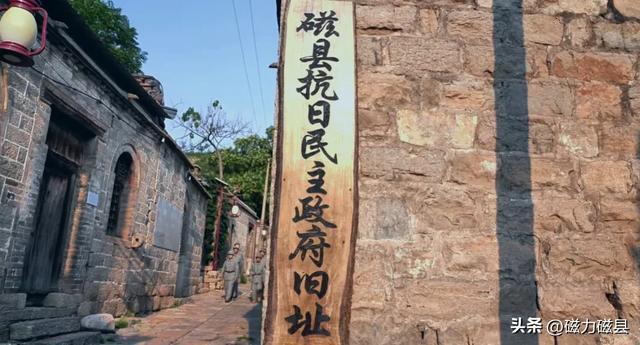 磁县抗日民主政府旧址
头条 @磁力磁县